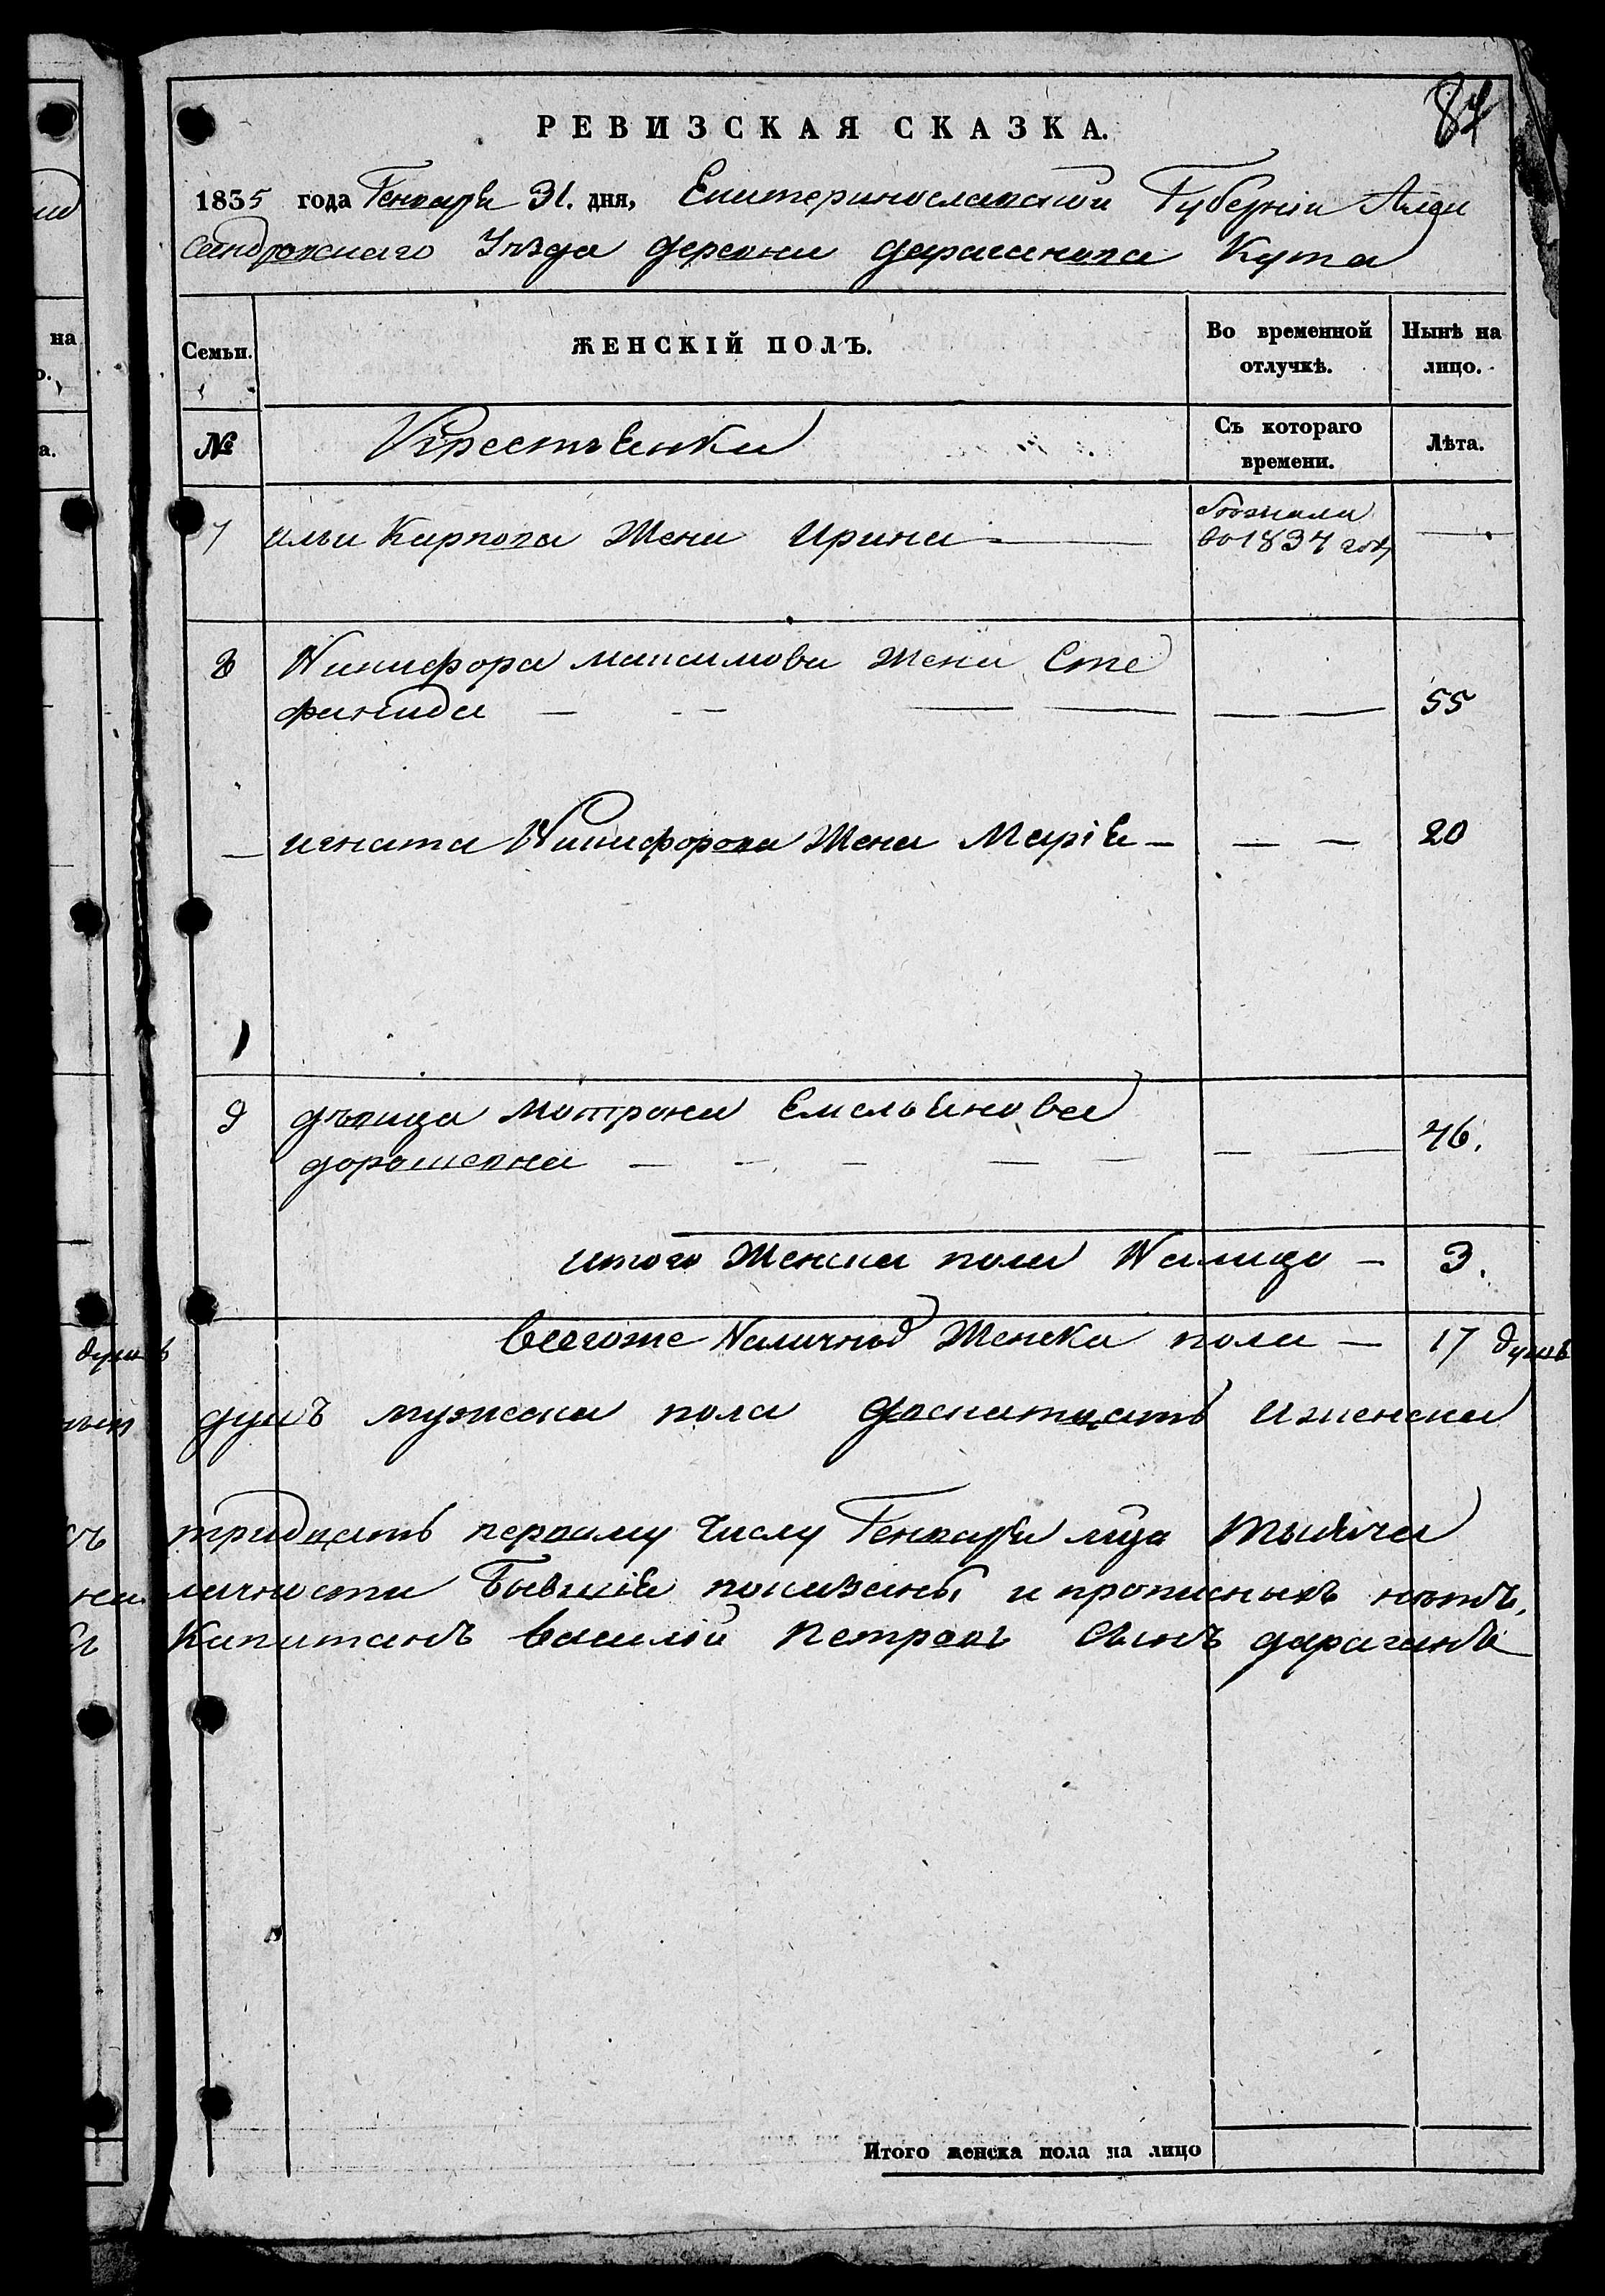 84
РЕВИЗСКАЯ СКАЗКА.
1835 года Генваря 31. дня, Екатеринославской Губернiи Алек
сандровскаго Уѣзда деревни Дараганова Кута
Семьи. ЖЕНСКIЙ ПОЛЪ. Во временной отлучкѣ. Нынѣ на лицо.
№ Крестьянки Съ котораго времени. Лѣта.
7 Ильи Карпова жена Ирина
бѣжала
во 1834 году
8 Никифора Максимова жена Сте
фанида 55
Игната Никифорова жена Марiя 20
9 дѣвица Мотрона Емельянова
дорошевна 46.
итого женска пола налицо 3.
всегоже наличныхъ женска пола 17 душъ
душъ мужеска пола двенатцать и женска
тридцать первому числу Генваря мца тысяча
личности бывшiя показаны и прописныхъ нѣтъ.
Капитанъ Василiй Петровъ сынъ Дараганъ
Итого женска пола на лицо
на
а.
душъ
къ